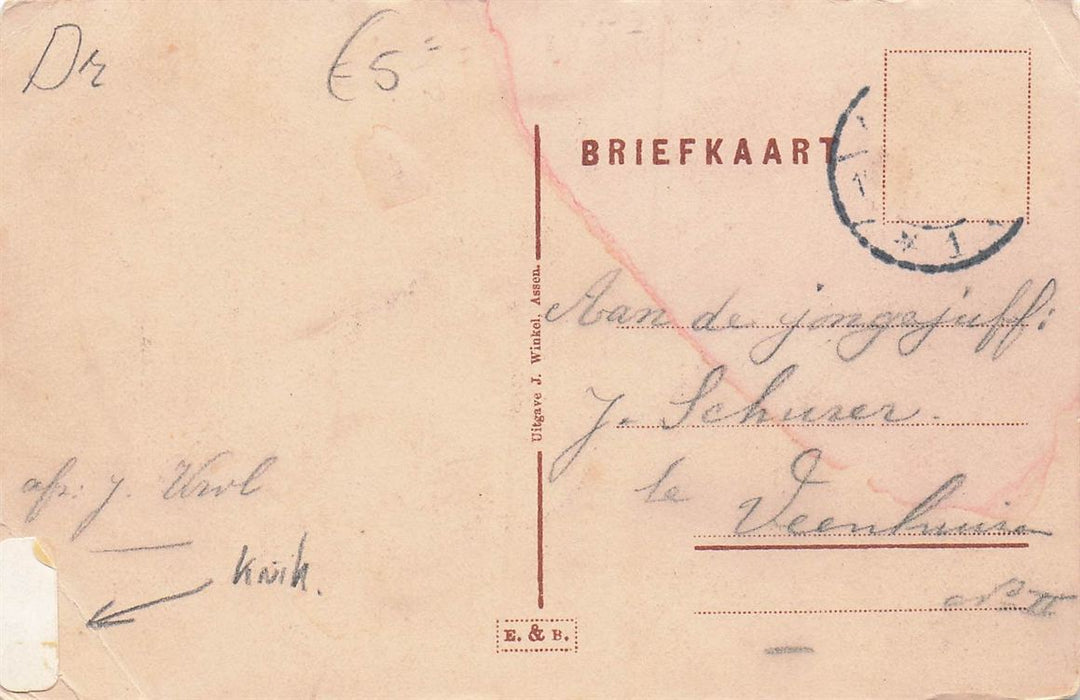 Dr
€ 5-
BRIEFKAART
1
* 1
Uitgave J. Winkel, Assen.
Aan de jongejuff:
J. Schurer.
te Veenhuizen
No II
afz: J. Krol
knik.
E. & B.